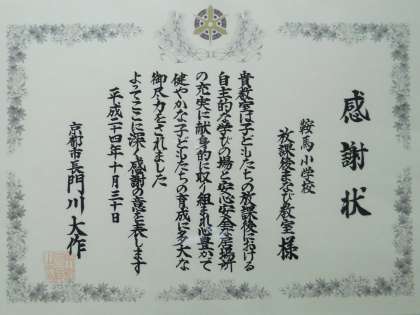 感謝状
鞍馬小学校
放課後まなび教室 様
貴教室は子どもたちの放課後における
自主的な学びの場と安心安全な居場所
の充実に献身的に取り組まれ心豊かで
健やかな子どもたちの育成に多大な
御尽力をされました
よってここに深く感謝の意を表します
平成二十四年十月三十日
京都市長 門川大作